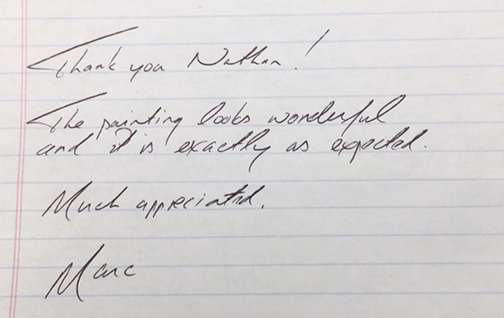 Thank you Nathan!
The painting looks wonderful
and it is exactly as expected.
Much appreciated.
Marc